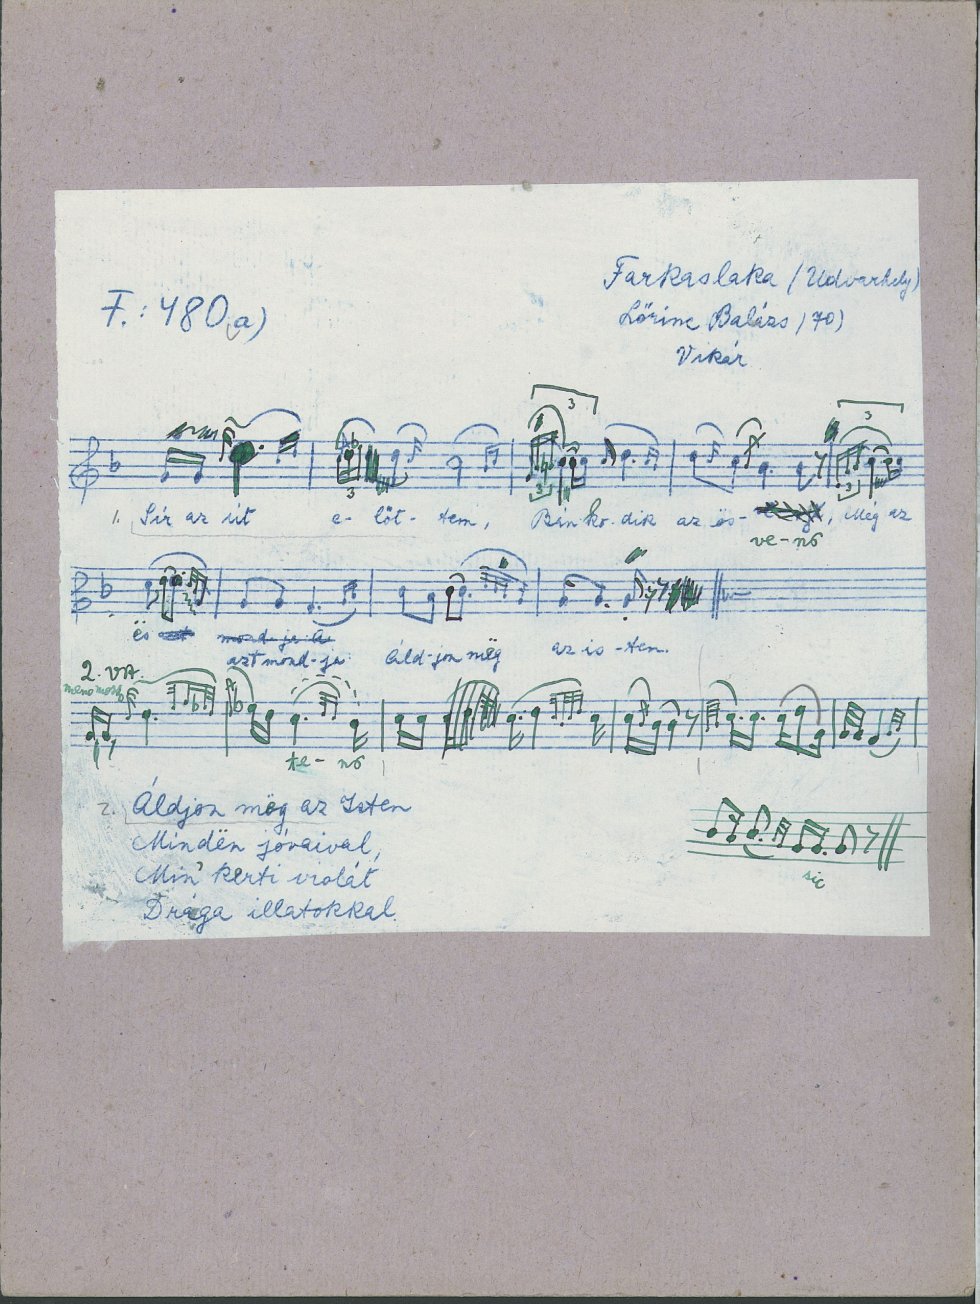 F.: 480 a)
Farkaslaka (Udvarhely)
Lőrinc Balázs (70)
Vikár
3 3
3 3 3
1. Sír az út e- lőt- tem, Bán- ko- dik az ös- , Még az
ve- nő
ës
azt mond- ja: Áld- jon mëg az is- ten.
2. VA.
meno mosso
te- nő
2. Áldjon mëg az Isten
Mindën jóvaival,
Min' kerti violát
Drága illatokkal.
sic